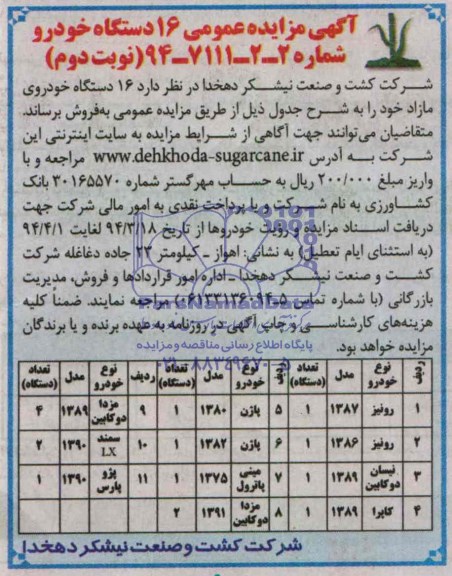 آگهی مزایده عمومی ۱۶ دستگاه خودرو
شماره ۲-۲-۷۱۱۱-۹۴ (نوبت دوم)
شرکت کشت و صنعت نیشکر دهخدا در نظر دارد ۱۶ دستگاه خودروی
مازاد خود را به شرح جدول ذیل از طریق مزایده عمومی به‌فروش برساند.
متقاضیان می‌توانند جهت آگاهی از شرایط مزایده به سایت اینترنتی این
شرکت به آدرس www.dehkhoda-sugarcane.ir مراجعه و با
واریز مبلغ ۲۰۰/۰۰۰ ریال به حساب مهرگستر شماره ۳۰۱۶۵۵۷۰ بانک
کشاورزی به نام شرکت و یا پرداخت نقدی به امور مالی شرکت جهت
دریافت اسناد مزایده و رویت خودروها از تاریخ ۹۴/۳/۱۸ لغایت ۹۴/۴/۱
(به استثنای ایام تعطیل) به نشانی: اهواز ـ کیلومتر ۲۳ جاده دغاغله شرکت
کشت و صنعت نیشکر دهخدا ـ اداره امور قراردادها و فروش، مدیریت
بازرگانی (با شماره تماس ۵-۰۶۱۳۳۱۳۶۰۹۴) مراجعه نمایند. ضمنا کلیه
هزینه‌های کارشناسی و چاپ آگهی در روزنامه به عهده برنده و یا برندگان
مزایده خواهد بود.
پایگاه اطلاع رسانی مناقصه و مزایده
۰۲۱-۸۸۳۴۹۶۷۰-۵
ردیف نوع خودرو مدل تعداد (دستگاه) ردیف نوع خودرو مدل تعداد (دستگاه) ردیف نوع خودرو مدل تعداد (دستگاه)
۱ رونیز ۱۳۸۷ ۱ ۵ پاژن ۱۳۸۰ ۱ ۹ مزدا دوکابین ۱۳۸۹ ۴
۲ رونیز ۱۳۸۶ ۱ ۶ پاژن ۱۳۸۲ ۱ ۱۰ سمند LX ۱۳۹۰ ۲
۳ نیسان دوکابین ۱۳۸۹ ۱ ۷ مینی پاترول ۱۳۷۵ ۱ ۱۱ پژو پارس ۱۳۹۰ ۱
۴ کاپرا ۱۳۸۹ ۱ ۸ مزدا دوکابین ۱۳۹۱ ۲
شرکت کشت و صنعت نیشکر دهخدا